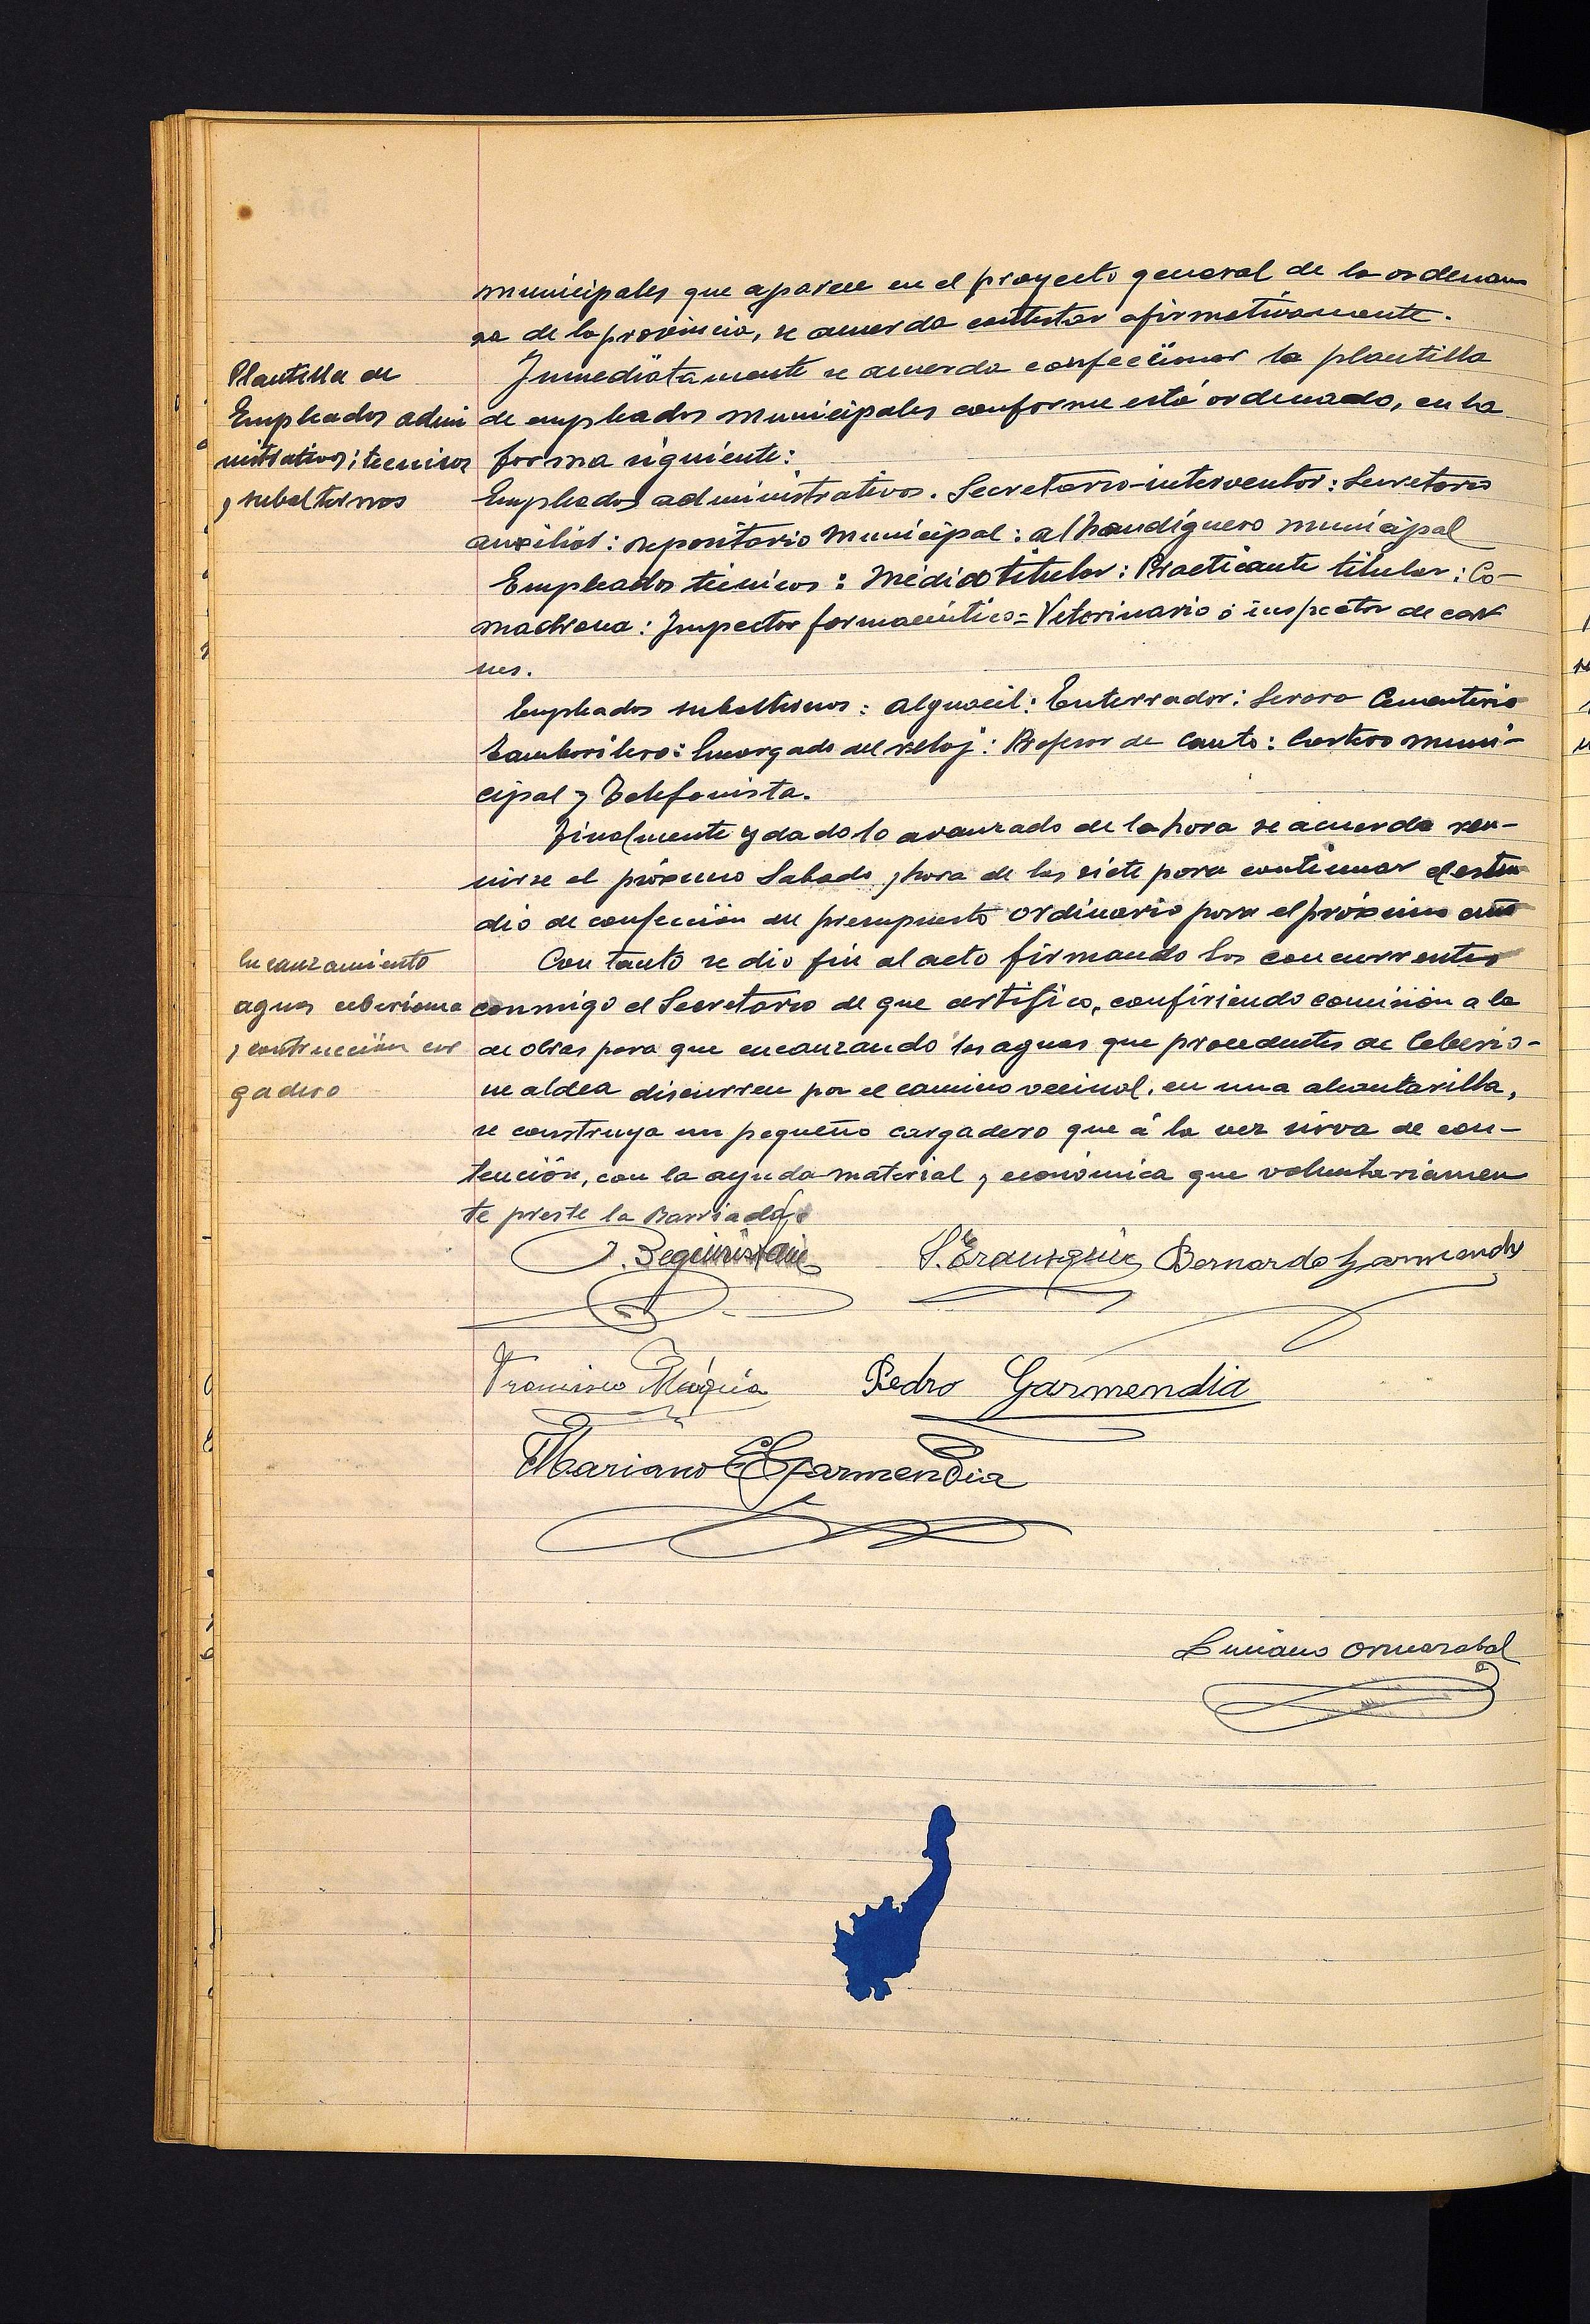 municipales que aparece en el proyecto general de la ordenan
za de la provincia, se acuerda contestar afirmativamente.
Plantilla de
Empleados admi
nistrativos; tecnicos
y subalternos
Inmediatamente se acuerda confeccionar la plantilla
de empleados municipales conforme está ordenado, en la
forma siguiente:
Empleados administrativos. Secretario-interventor: Secretario
auxiliar: Depositario Municipal: alhondiguero municipal
Empleados técnicos: Médico titular: Practicante titular: Co-
madrona: Inspector farmaceútico= Veterinario ó inspector de car
nes.
Empleados subalternos: alguacil: Enterrador: Serora Cementerio
Tamborilero: Encargado del reloj: Profesor de Canto: Cartero muni-
cipal y Telefonista.
Finalmente y dado lo avanzado de la hora se acuerda reu-
nirse el próximo Sabado y hora de las siete para continuar el estu
dio de confección del presupuesto ordinario para el próximo año
Encauzamiento
aguas ceberiana
y contrucción car
gadero
Con tanto se dio fin al acto firmando los concurrentes
conmigo el Secretario de que certifico, confiriendo comisión a la
de obras para que encauzando las aguas que procedentes de Ceberio-
ne aldea discurren por el camino vecinal, en una alcantarilla,
se construya un pequeño cargadero que á la vez sirva de con-
tención, con la ayuda material y económica que voluntariamen
te preste la Barriada
J. Beguiristain
S. Erausquin Bernardo Garmendia
Francisco Múgica Pedro Garmendia
Mariano Garmendia
Luciano Ormazabal